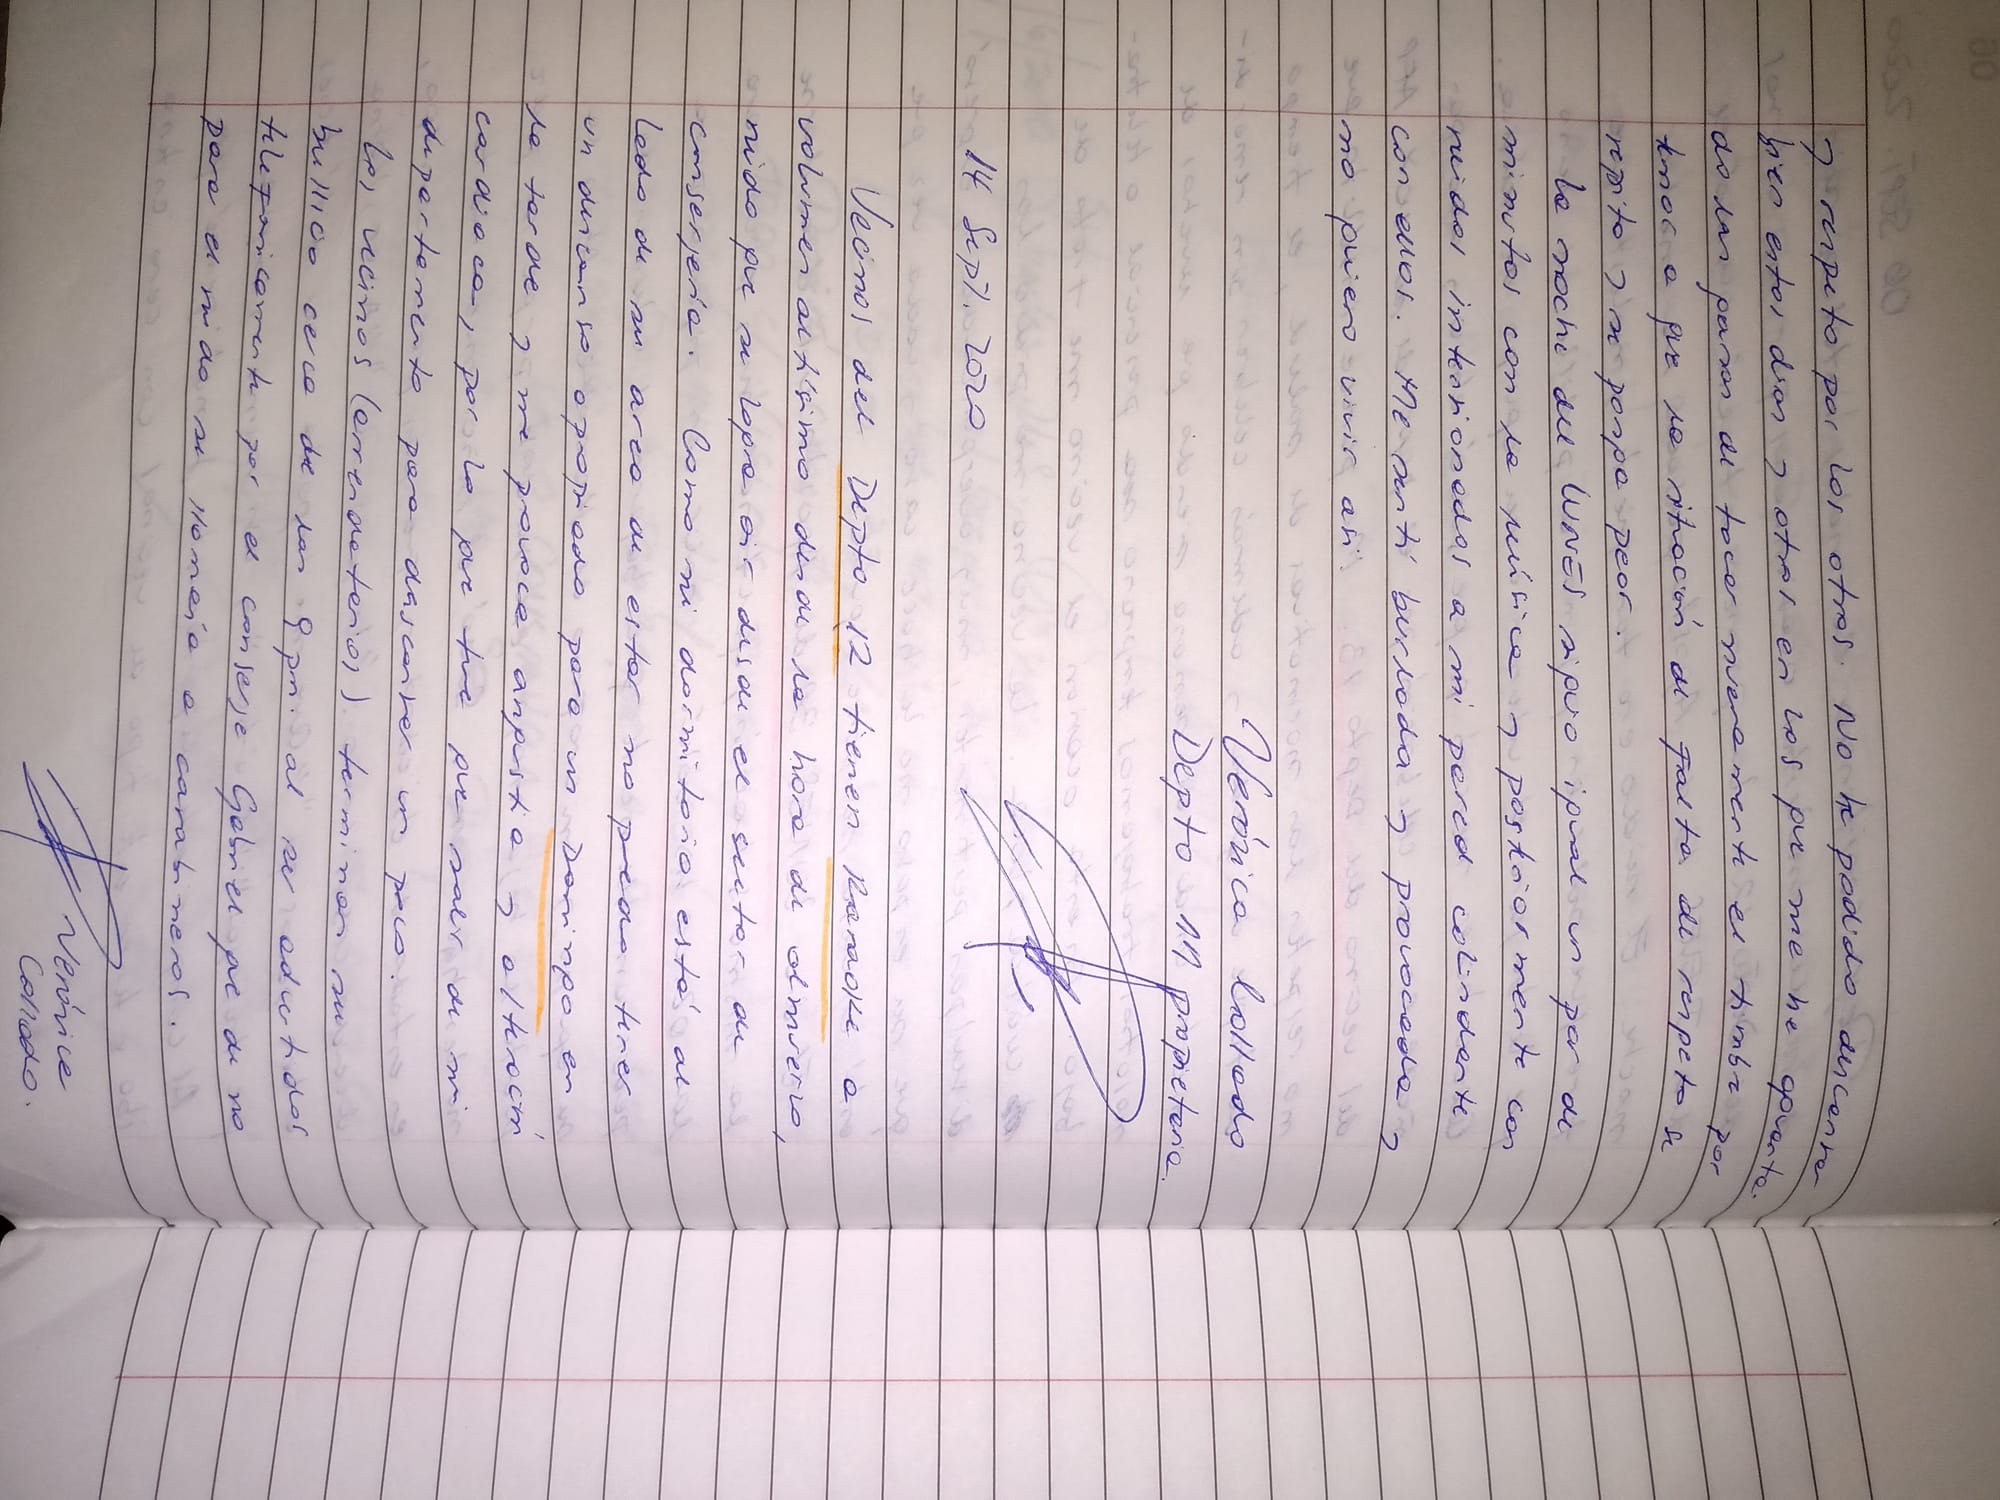 y respeto por los otros. No he podido descansar
bien estos días y otros en los que me he aguanta.
do las ganas de tocar nuevamente el timbre por
temor a que la situación de falta de respeto se
repita y se ponga peor.
La noche del LUNES siguió igual un par de
minutos con la música y posteriormente con
ruidos intensionados a mi pared colindante
con ellos. Me sentí burlada y provocada y
no quiero vivir así.
Verónica Collado
Depto 111 propietaria.
14 Sept. 2020
Vecinos del Depto 12 tienen Karaoke a
volumen altísimo desde la hora de almuerzo,
ruido que se logra oir desde el sector de
conserjería. Como mi dormitorio está al
lado de su area de estar no puedo tener
un descanso apropiado para un Domingo en
la tarde y me provoca angustia y alteración
cardiaca, por lo que tuve que salir de mi
departamento para descansar un poco.
Los vecinos (arrendatarios) terminan su
bullicio cerca de las 9 pm. al ser advertidos
telefonicamente por el conserje Gabriel que de no
parar el ruido se llamaría a carabineros.
Verónica
Collado.